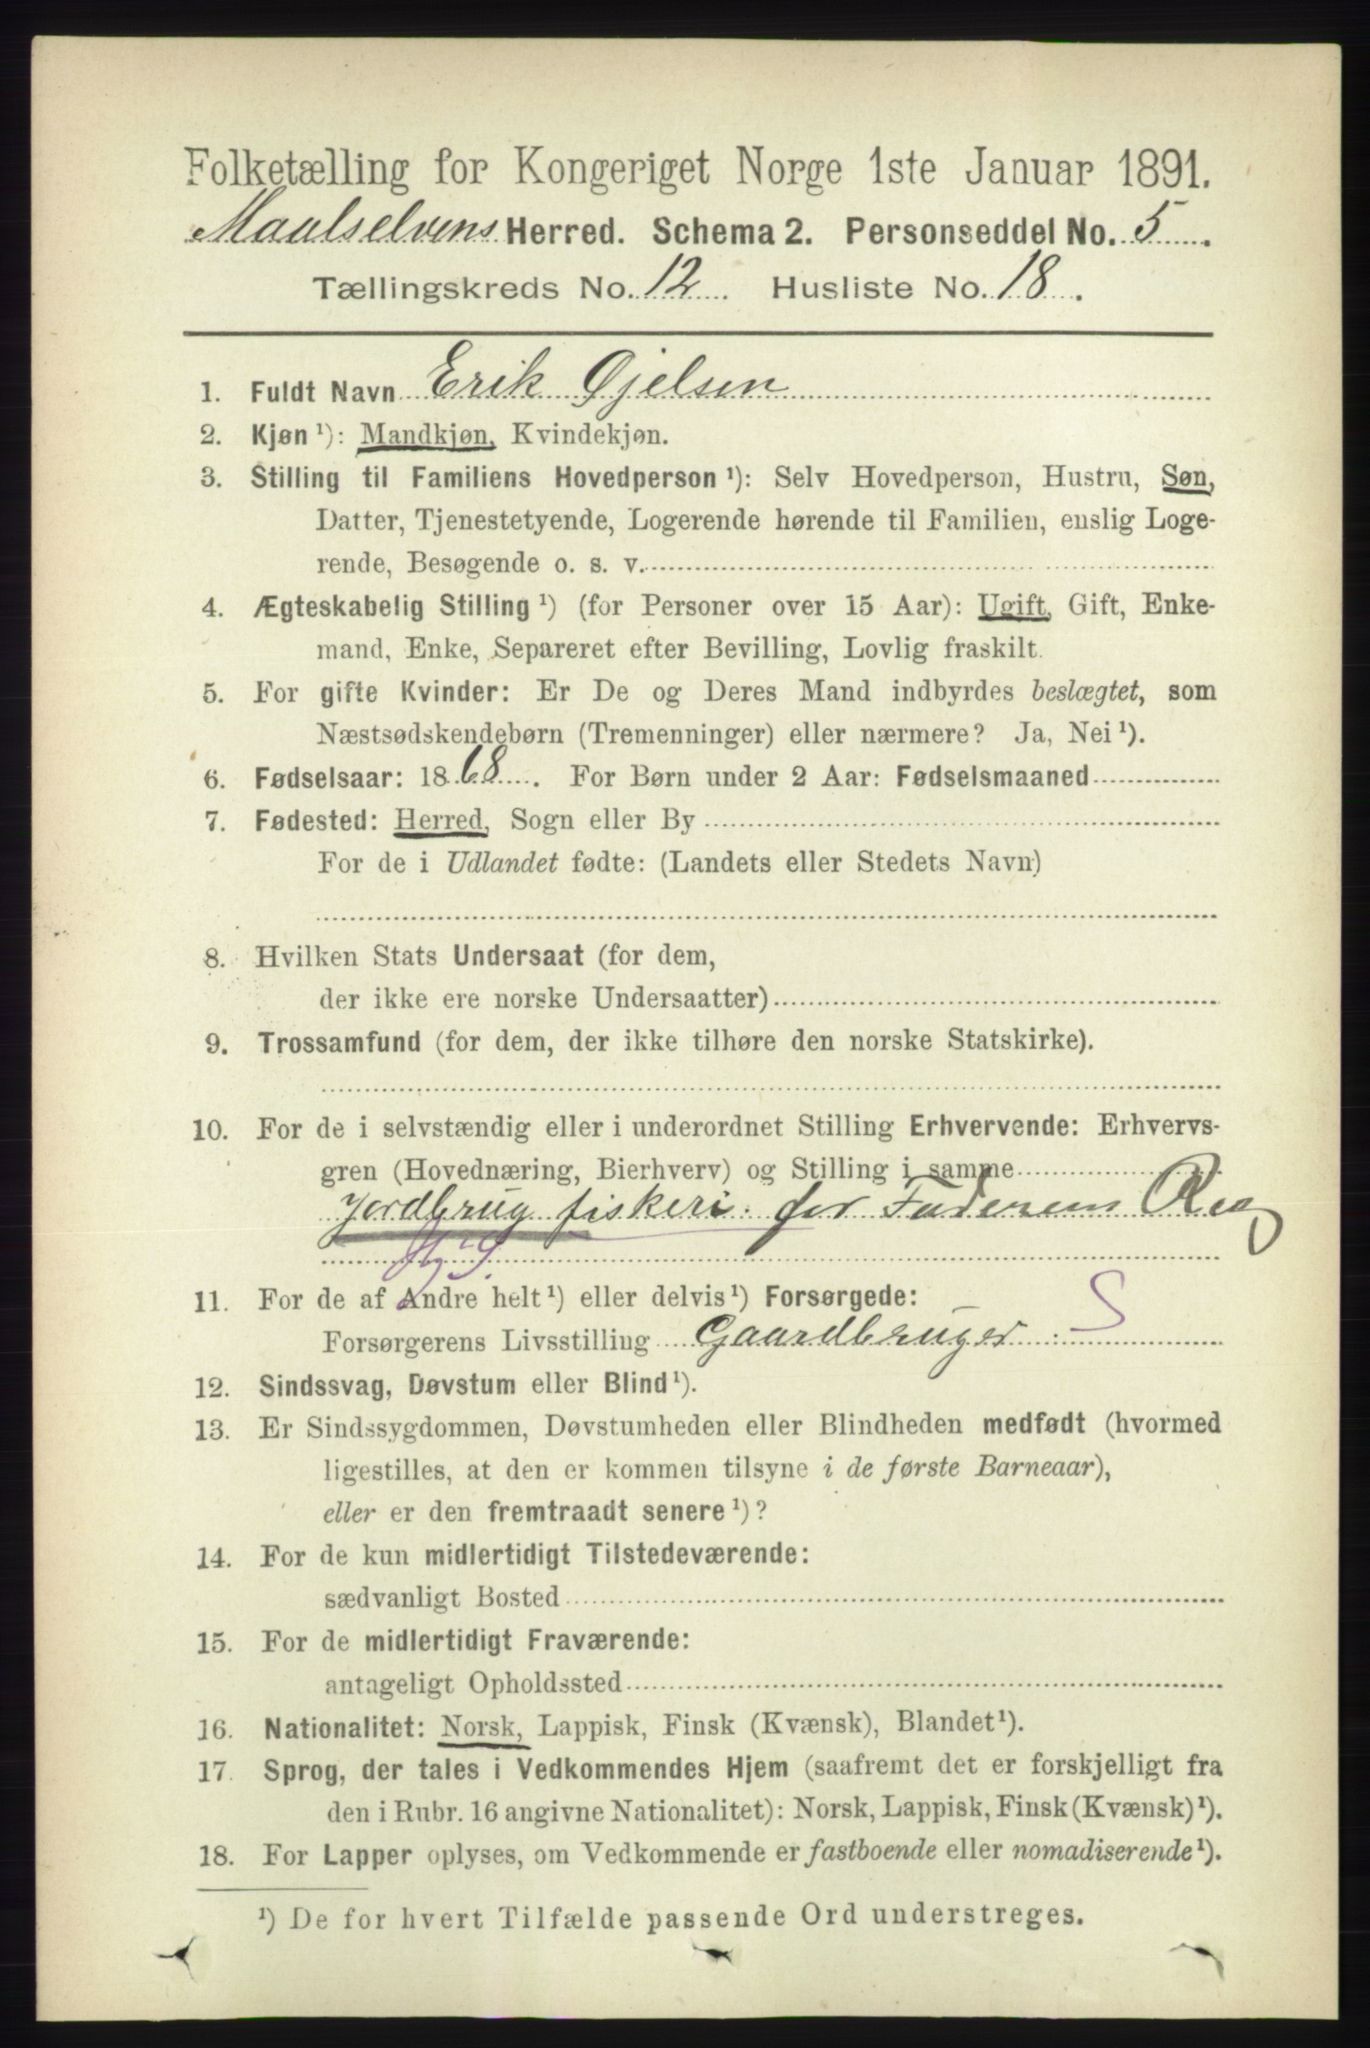 Folketælling for Kongeriget Norge 1ste Januar 1891.
Maalselvens Herred. Schema 2. Personseddel No. 5.
Tællingskreds No. 12. Husliste No. 18.
1. Fuldt Navn Erik Øjelsen
2. Kjøn ¹): Mandkjøn, Kvindekjøn.
3. Stilling til Familiens Hovedperson ¹): Selv Hovedperson, Hustru, Søn,
Datter, Tjenestetyende, Logerende hørende til Familien, enslig Loge-
rende, Besøgende o. s. v.
4. Ægteskabelig Stilling ¹) (for Personer over 15 Aar): Ugift, Gift, Enke-
mand, Enke, Separeret efter Bevilling, Lovlig fraskilt.
5. For gifte Kvinder: Er De og Deres Mand indbyrdes beslægtet, som
Næstsødskendebørn (Tremenninger) eller nærmere? Ja, Nei ¹).
6. Fødselsaar: 1868. For Børn under 2 Aar: Fødselsmaaned
7. Fødested: Herred, Sogn eller By
For de i Udlandet fødte: (Landets eller Stedets Navn)
8. Hvilken Stats Undersaat (for dem,
der ikke ere norske Undersaatter)
9. Trossamfund (for dem, der ikke tilhøre den norske Statskirke).
10. For de i selvstændig eller i underordnet Stilling Erhvervende: Erhvervs-
gren (Hovednæring, Bierhverv) og Stilling i samme
Jordbrug fiskeri. for Faderens Reg
11. For de af Andre helt ¹) eller delvis ¹) Forsørgede: S
Forsørgerens Livsstilling Gaardbruger
12. Sindssvag, Døvstum eller Blind ¹).
13. Er Sindssygdommen, Døvstumheden eller Blindheden medfødt (hvormed
ligestilles, at den er kommen tilsyne i de første Barneaar),
eller er den fremtraadt senere ¹)?
14. For de kun midlertidigt Tilstedeværende:
sædvanligt Bosted
15. For de midlertidigt Fraværende:
antageligt Opholdssted
16. Nationalitet: Norsk, Lappisk, Finsk (Kvænsk), Blandet ¹).
17. Sprog, der tales i Vedkommendes Hjem (saafremt det er forskjelligt fra
den i Rubr. 16 angivne Nationalitet): Norsk, Lappisk, Finsk (Kvænsk) ¹).
18. For Lapper oplyses, om Vedkommende er fastboende eller nomadiserende ¹).
¹) De for hvert Tilfælde passende Ord understreges.